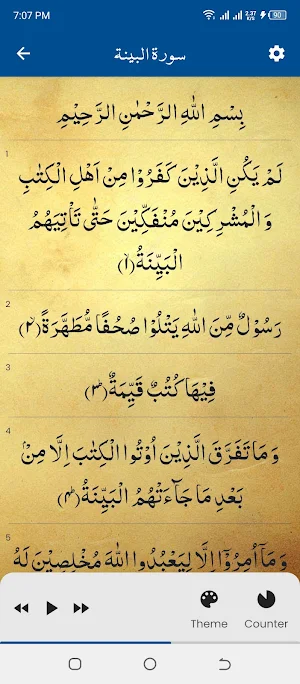 7:07 PM
2.37
K/s
90
سورة البينة
بِسْمِ اللّٰهِ الرَّحْمٰنِ الرَّحِيْمِ
1
لَمْ يَكُنِ الَّذِيْنَ كَفَرُوْا مِنْ اَهْلِ الْكِتٰبِ
وَالْمُشْرِكِيْنَ مُنْفَكِّيْنَ حَتّٰى تَاْتِيَهُمُ
الْبَيِّنَةُ(۱)
2
رَسُوْلٌ مِّنَ اللّٰهِ يَتْلُوْا صُحُفًا مُّطَهَّرَةً(۲)
3
فِيْهَا كُتُبٌ قَيِّمَةٌ(۳)
4
وَ مَا تَفَرَّقَ الَّذِيْنَ اُوْتُوا الْكِتٰبَ اِلَّا مِنْۢ
بَعْدِ مَا جَآءَتْهُمُ الْبَيِّنَةُ(۴)
5
وَ مَاۤ اُمِرُوْۤا اِلَّا لِيَعْبُدُوا اللّٰهَ مُخْلِصِيْنَ لَهُ
Theme
Counter